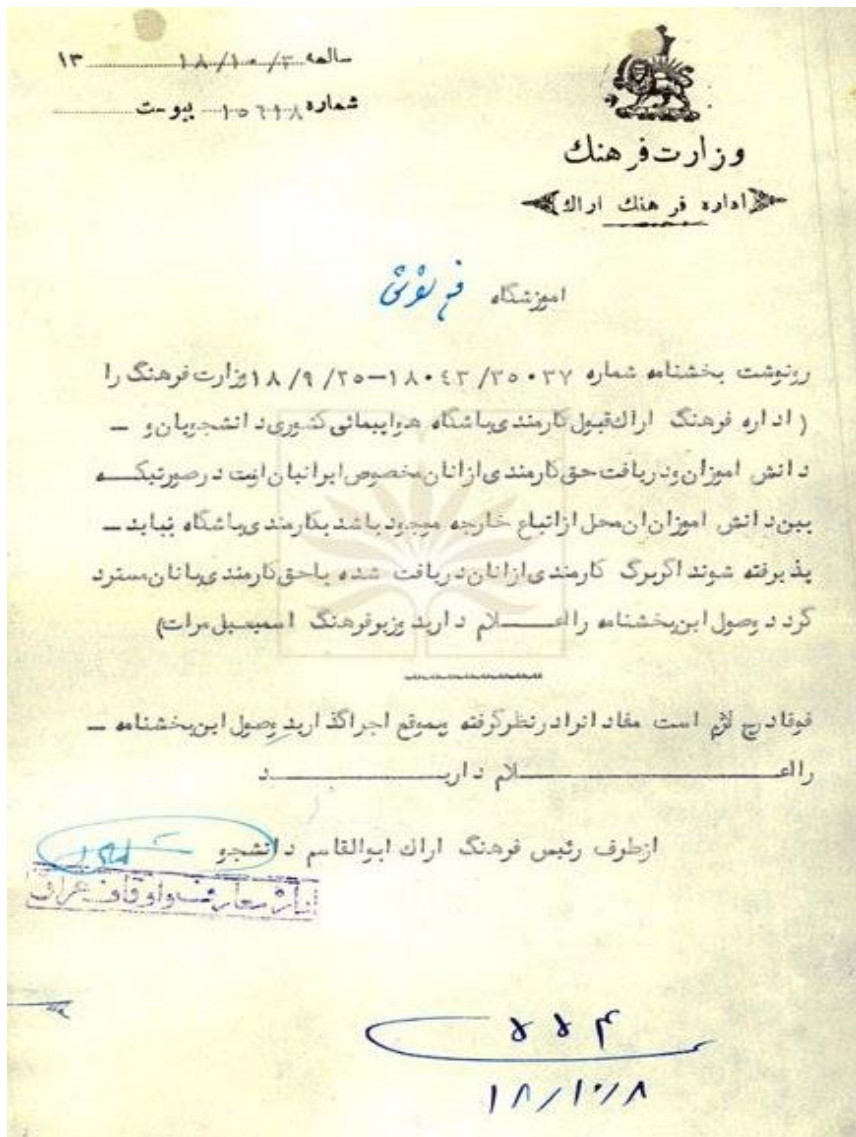 سالمه ۱۸/۱۰/۳ ۱۳
شماره ۱۰۶۱۸ پیوست
وزارت فرهنك
اداره فرهنك اراك
اموزشگاه
رونوشت بخشنامه شماره ۱۸۰۴۳/۳۵۰۳۷–۱۸/۹/۲۵ وزارت فرهنگ را
( اداره فرهنگ اراك قبول کارمندی باشگاه هواپیمائی کشوری دانشجویان و –
دانش اموزان و دریافت حق کارمندی ازانان مخصوص ایرانیان است درصورتیکه
بین دانش اموزان ان محل ازاتباع خارجه موجود باشد بکارمندی باشگاه نباید –
پذیرفته شوند اگربرگ کارمندی ازانان دریافت شده یاحق کارمندی بانان مسترد
گردد وصول این بخشنامه را اعلام دارید وزیر فرهنگ اسمعیل مرات)
فوقا درج لازم است مفاد انرا در نظر گرفته بموقع اجرا گذارید وصول این بخشنامه –
را اعلام دارید
ازطرف رئیس فرهنگ اراك ابوالقاسم دانشجو
اداره معارف و اوقاف عراق
۱۸/۱۰/۸